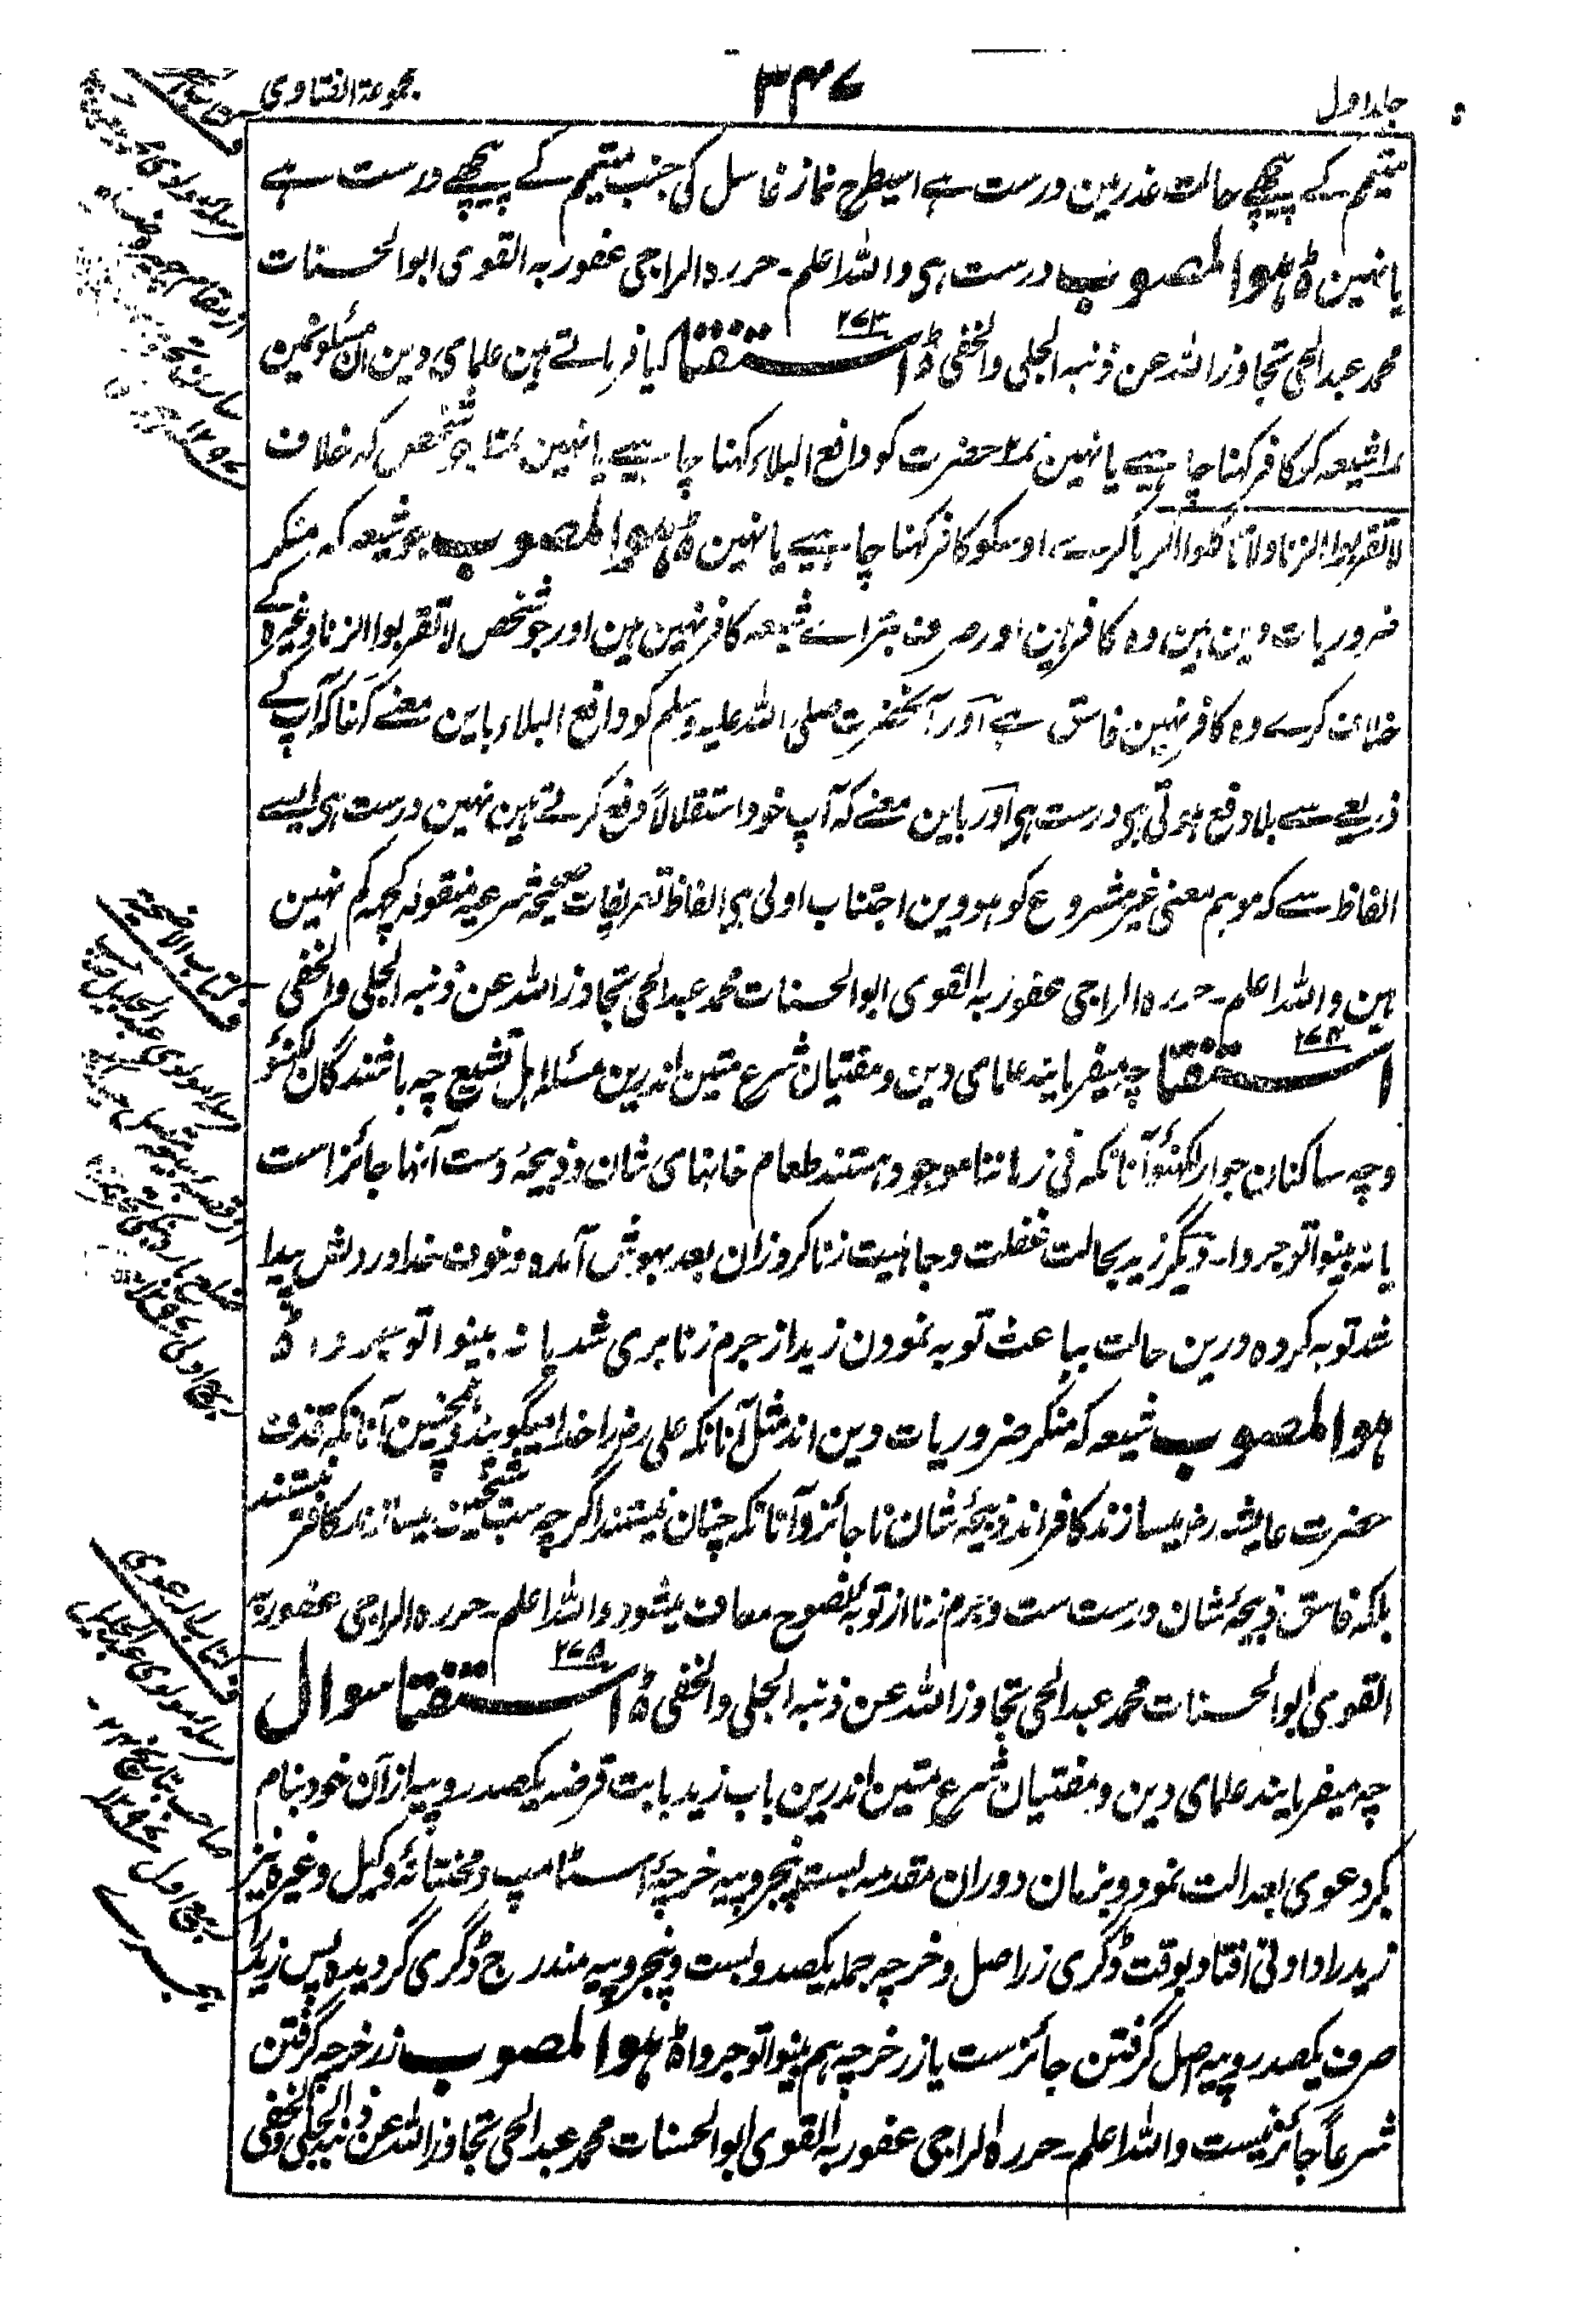 جلد اول
۳۴۷
مجموعۃ الفتاوی
متیمم کے پیچھے حالت عذر مین درست ہے اسیطرح نماز غاسل کی جنب متیمم کے پیچھے درست ہے
یا نہین ۃ ہو المصوب درست ہی واللہ اعلم۔ حررہ الراجی عفو ربہ القوی ابو الحسنات
محمد عبد الحی تجاوز اللہ عن ذنبہ الجلی والخفی ۃ استفتا ۲۷۳ کیا فرماتے ہین علمای دین ان مسئلونمین
۱ شیعہ کو کافر کہنا چاہیے یا نہین ۲ حضرت کو دافع البلاء کہنا چاہیے یا نہین ۳ جو شخص کہ خلاف
لا تقربوا الزنا ولا تاکلوا الربا کرے اوسکو کافر کہنا چاہیے یا نہین ۃ ہو المصوب جو شیعہ کہ منکر
ضروریات دین ہین وہ کافر ہین اور صرف تبرا سے شیعہ کافر نہین ہین اور جو شخص لا تقربوا الزنا وغیرہ کے
خلاف کرے وہ کافر نہین فاسق ہے اور آنحضرت صلی اللہ علیہ وسلم کو دافع البلاء باین معنے کہنا کہ آپ کے
ذریعے سے بلا دفع ہوتی ہی درست ہی اور باین معنے کہ آپ خود استقلالاً دفع کرتے ہین نہین درست ہی ایسے
الفاظ سے کہ موہم معنی غیر مشروع کو ہووین اجتناب اولی ہی الفاظ تعریفات صحیحہ شرعیہ منقولہ کچھ کم نہین
ہین واللہ اعلم۔ حررہ الراجی عفو ربہ القوی ابو الحسنات محمد عبد الحی تجاوز اللہ عن ذنبہ الجلی والخفی
استفتا ۲۷۴ چہ میفرمایند علمای دین ومفتیان شرع متین اندرین مسئلہ اہل تشیع چہ باشندگان لکھنؤ
وچہ ساکنان جوار لکھنؤ آنانکہ فی زماننا موجود ہستند طعام خانہای شان وذبیحۂ دست آنہا جائز است
یا نہ بینوا توجروا۔ دیگر زید بحالت غفلت وجاہلیت زنا کرد زان بعد بہوش آمدہ وخوف خدا در دلش پیدا
شد توبہ کردہ درین حالت بباعث توبہ نمودن زید از جرم زنا بری شد یا نہ بینوا توجروا ۃ
ہو المصوب شیعہ کہ منکر ضروریات دین اند مثل آنانکہ علی رض را خدا میگویند وہمچنین آنانکہ قذف
حضرت عایشہ رض میسازند کافر اند ذبیحۂ شان ناجائز وآنانکہ چنان نیستند اگرچہ سب شیخین میسازند کافر نیستند
بلکہ فاسق ذبیحۂ شان درست ست وجرم زنا از توبۂ نصوح معاف میشود واللہ اعلم۔ حررہ الراجی عفو ربہ
القوی ابو الحسنات محمد عبد الحی تجاوز اللہ عن ذنبہ الجلی والخفی ۃ استفتا ۲۷۵ سوال
چہ میفرمایند علمای دین ومفتیان شرع متین اندرین باب زید بابت قرضہ یکصد روپیہ از آن خود بنام
بکر دعوی بعدالت نمود وبزمان دوران مقدمہ بست وپنجروپیہ خرچۂ اسٹامپ ومختانۂ وکیل وغیرہ نیز
زید را دادنی افتاد بوقت ڈگری زر اصل وخرچہ جملہ یکصد وبست وپنجروپیہ مندرج ڈگری گردیدہ پس زید را
صرف یکصد روپیہ اصل گرفتن جائز ست یا زر خرچہ ہم بینوا توجروا ۃ ہو المصوب زر خرچہ گرفتن
شرعاً جائز نیست واللہ اعلم۔ حررہ الراجی عفو ربہ القوی ابو الحسنات محمد عبد الحی تجاوز اللہ عن ذنبہ الجلی والخفی
کتاب الاضحیۃ
کتاب الدعوی